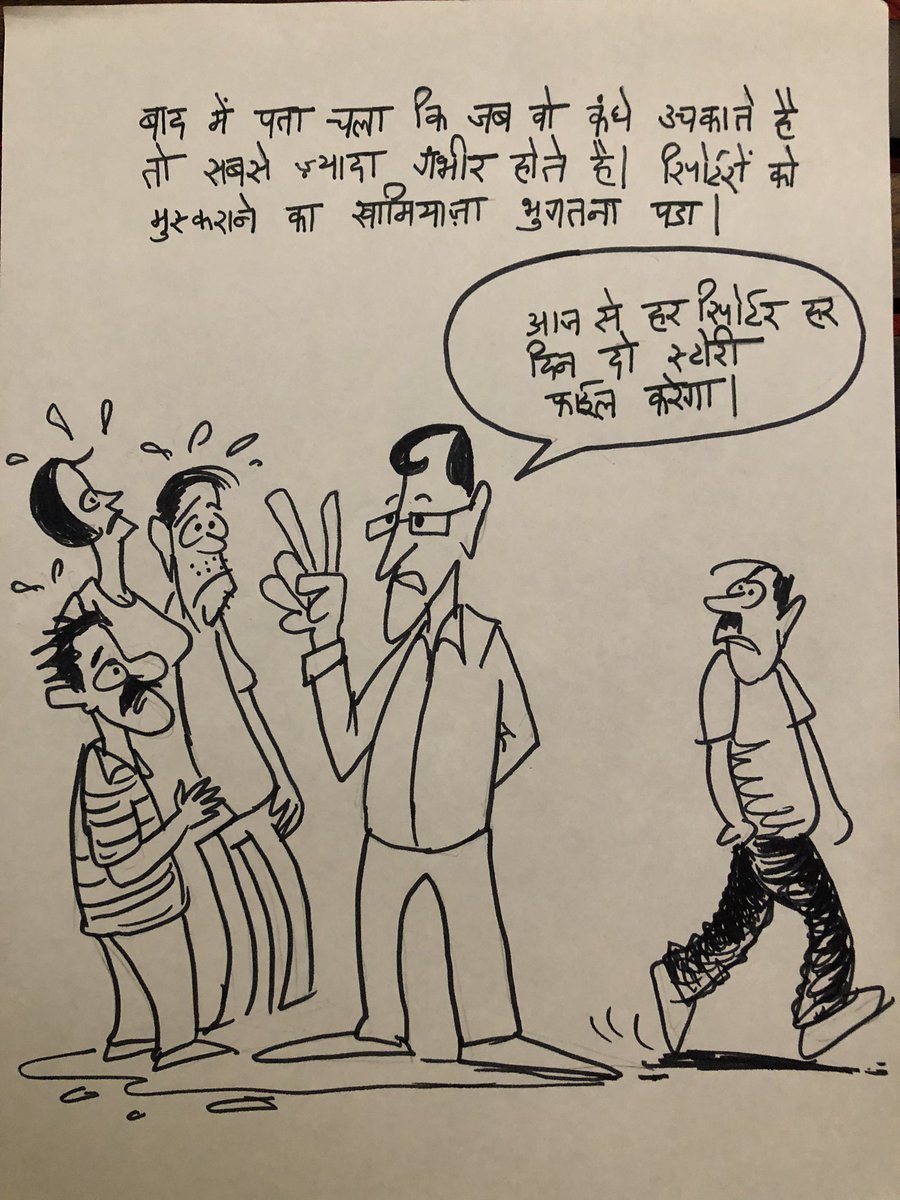 बाद में पता चला कि जब वो कंधे उचकाते है
तो सबसे ज़्यादा गंभीर होते है। रिपोर्टरों को
मुस्कराने का खामियाज़ा भुगतना पडा।
आज से हर रिपोर्टर हर
दिन दो स्टोरी
फाईल करेगा।